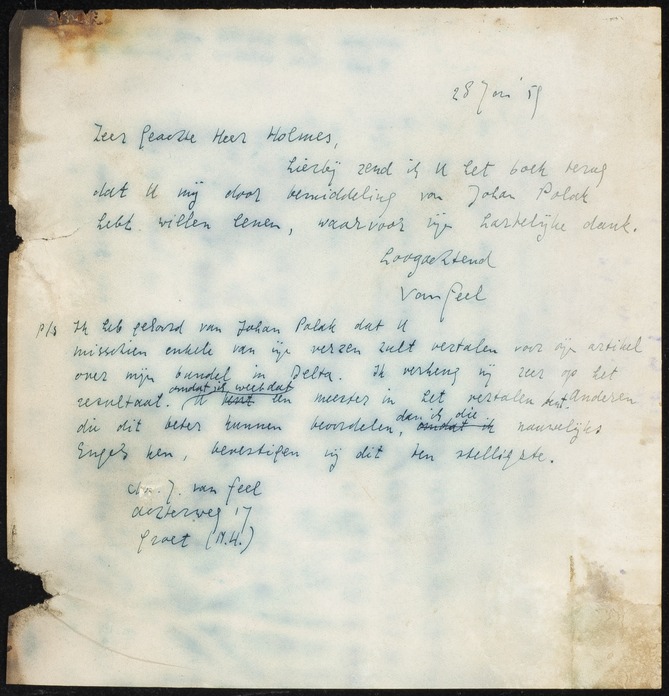 28 Jan '59
Zeer geachte Heer Holmes,
hierbij zend ik U het boek terug
dat U mij door bemiddeling van Johan Polak
hebt willen lenen, waarvoor mijn hartelijke dank.
hoogachtend
Van Geel
P/S Ik heb gehoord van Johan Polak dat U
misschien enkele van mijn verzen zult vertalen voor mijn artikel
over mijn bundel in Delta. Ik verheug mij zeer op het
omdat ik weet dat
resultaat. U bent een meester in het vertalen bent. Anderen
dan ik die
die dit beter kunnen beoordelen, omdat ik nauwelijks
Engels ken, bevestigen mij dit ten stelligste.
Chr. J. van Geel
Achterweg 17
Groet (N.H.)